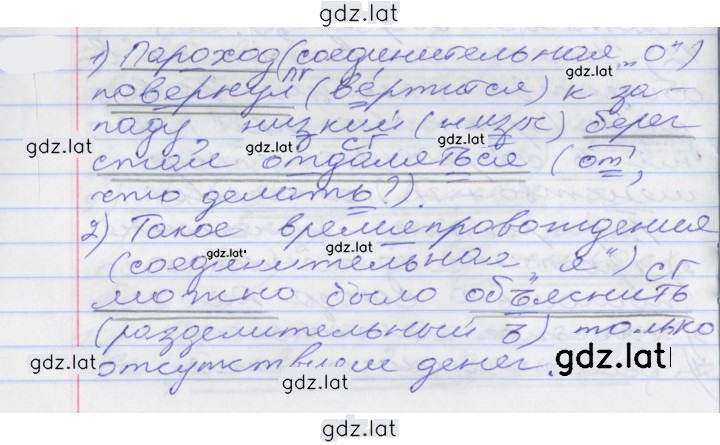 gdz.lat
1) Пароход (соединительная „о")
gdz.lat
пг
повернул (вертится) к за-
паду, низкий (низы) берег
gdz.lat
gdz.lat
СГ
стал отдаляться (от,
что делать?).
gdz.lat
gdz.lat
2) Такое времяпровождение
gdz.lat
gdz.lat
(соединительная „я")
СГ
можно было объяснить
(разделительный ъ) только
gdz.lat
gdz.lat
отсутствием денег.
gdz.lat
gdz.lat